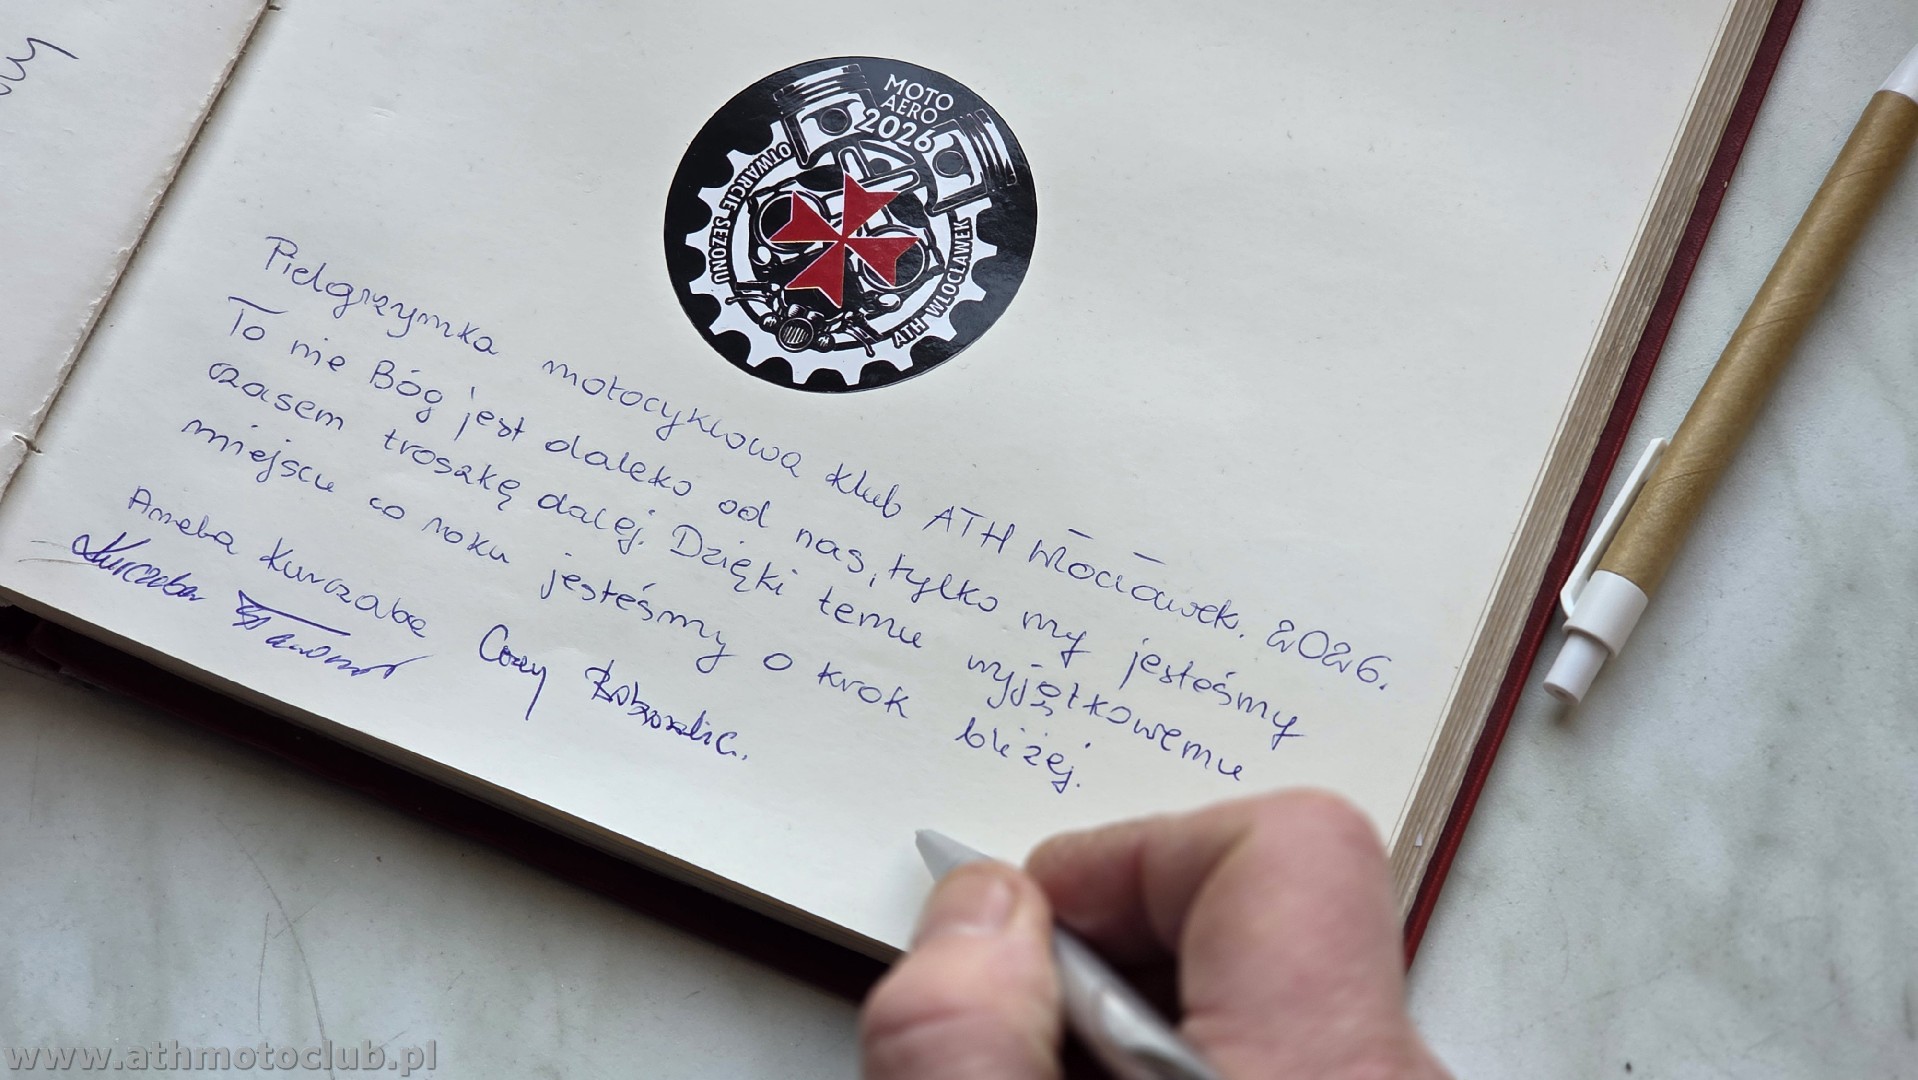 MOTO
AERO
2026
OTWARCIE SEZONU
ATH WŁOCŁAWEK
Pielgrzymka motocyklowa klub ATH Włocławek. 2026.
To nie Bóg jest daleko od nas, tylko my jesteśmy
czasem troszkę dalej. Dzięki temu wyjątkowemu
miejscu co roku jesteśmy o krok bliżej.
Aneba Kurczabę
www.athmotoclub.pl